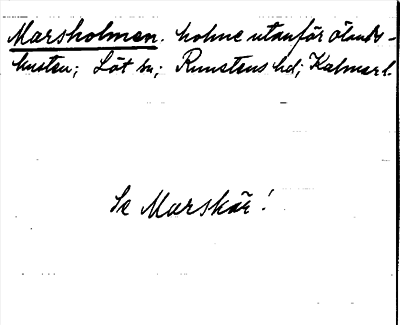 Marsholmen. holme utanför Ölands-
kusten; Löt sn; Runstens hd; Kalmar l.
Se Marskär!